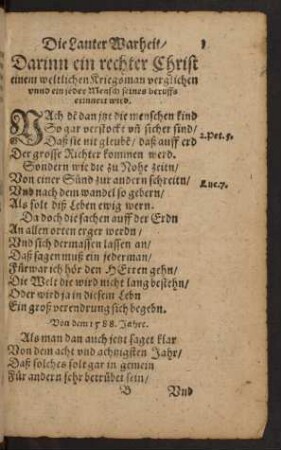 Die Lauter Warheit/
Darinn ein rechter Christ
einem weltlichen Kriegsman verglichen
vnnd ein jeder Mensch seines beruffs
erinnert wird.
NAch dē dan jtzt die menschen kind
So gar verstockt vñ sicher sind/
Daß sie nit gleubē/ daß auff erd
2.Pet.3.
Der grosse Richter kommen werd.
Sondern wie die zu Nohe zeitn/
Von einer Sünd zur andern schreitn/
Luc.7.
Vnd nach dem wandel so gebern/
Als solt diß Leben ewig wern.
Da doch die sachen auff der Erdn
An allen orten erger werdn/
Vnd sich dermassen lassen an/
Daß sagen muß ein jederman/
Fürwar ich hör den HErren gehn/
Die Welt die wird nicht lang bestehn/
Oder wird ja in diesem Lebn
Ein groß verendrung sich begebn.
Von dem 1588. Jahre.
Als man dan auch jetzt saget klar
Von dem acht vnd achtzigsten Jahr/
Daß solches solt gar in gemein
Für andern sehr betrübet sein/
B Vnd